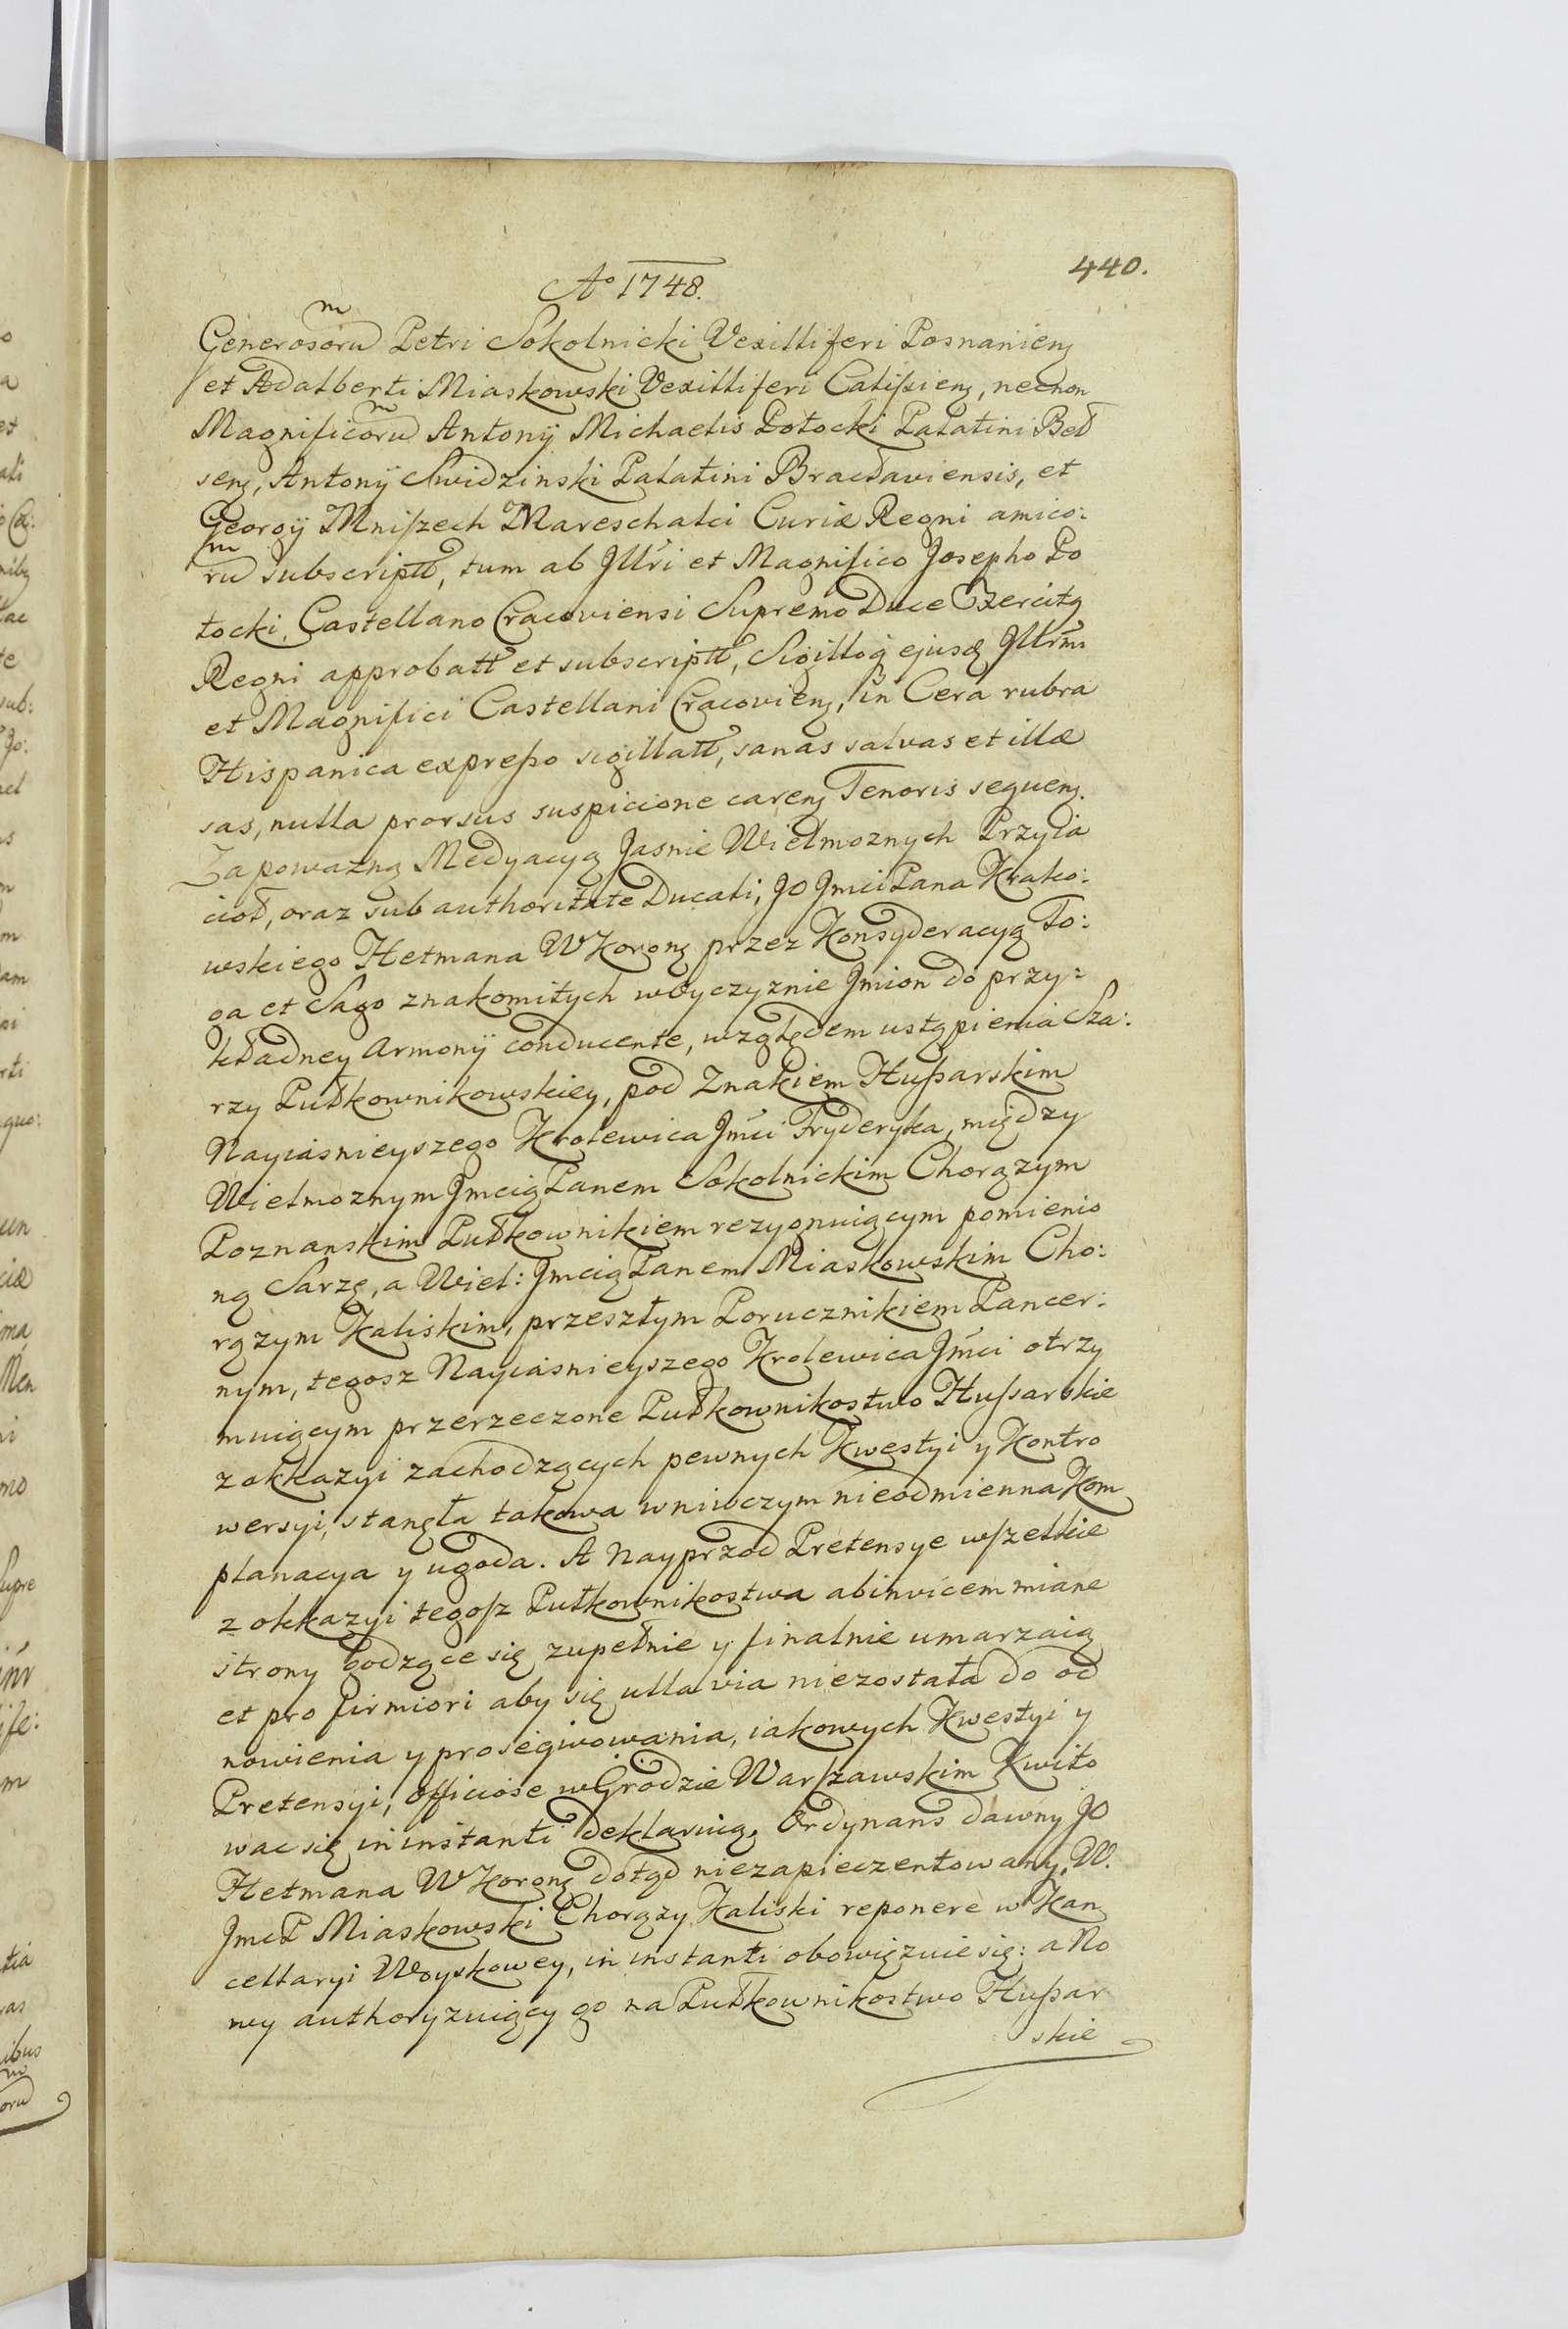 440.
Ao 1748.
Generosoru[m] Petri Sokolnicki Vexilliferi Posnanieng
et Adalberti Miaskowski Vexilliferi Calißieng, necnon
Magnificoru[m] Antonij Michaelis Potocki Palatini Beł
seng, Antonij Swidzinski Palatini Bracłaviensis, et
Georgij Mniszech Mareschalci Curiæ Regni amico:
ru[m] subscriptt, tum ab Jllri et Magnifico Josepho Po
tocki, Castellano Cracoviensi Supremo Duce Exercitg
Regni approbatt et subscriptt, Sigilloq ejusd Jllrmi
et Magnifici Castellani Cracovieng, in Cera rubra
Hispanica expreßo sigillatt, sanas salvas et illæ
sas, nulla prorsus suspicione careng Tenoris sequeng.
Za powazną Medyacyą Jasnie Wielmoznych Przyia
cioł, oraz sub authoritate Ducali, JO Jmci Pana Krako:
wskiego Hetmana WKorong przez Konsyderacyą To:
ga et Sago znakomitych w Oyczyznie Jmion do przy=
kładney Armonij conducente, względem ustąpienia Sza:
rzy Pułkownikowskiey, pod Znakiem Hußarskim
Nayiasnieyszego Krolewica Jmci Fryderyka, między
Wielmoznym Jmcią Panem Sokolnickim Chorązym
Poznanskim Pułkownikiem rezygnuiącym pomienio
ną Sarzę, a Wiel: Jmcią Panem Miaskowskim Cho:
rązym Kaliskim, przeszłym Porucznikiem Pancer:
nym, tegosz Nayiasnieyszego Krolewica Jmci otrzy
muiącym przerzeczone Pułkownikostwo Hußarskie
z okkazyi zachodzących pewnych Kwestyi y Kontro
wersyi, stanęła takowa wniwczym nieodmienna Kom
planacya y ugoda. A Nayprzod Pretensye wszelkie
z okkazyi tegosz Pułkownikostwa abinvicem miane
strony godzące się zupełnie y finalnie umarzaią
et pro firmiori aby się ulla via niezostała do od
nowienia y prosegwowania, iakowych Kwestyi y
Pretensyi, officiose w Grodzie Warszawskim Kwito
wac się in instanti deklaruią. Ordynans dawny JO
Hetmana WKorong dotąd niezapieczentowany, W.
JmcP Miaskowski Chorązy Kaliski reponere w Kan
cellaryi Woyskowey, in instanti obowięzuie się: a No
wy authoryzuiący go na Pułkownikostwo Hußar
skie